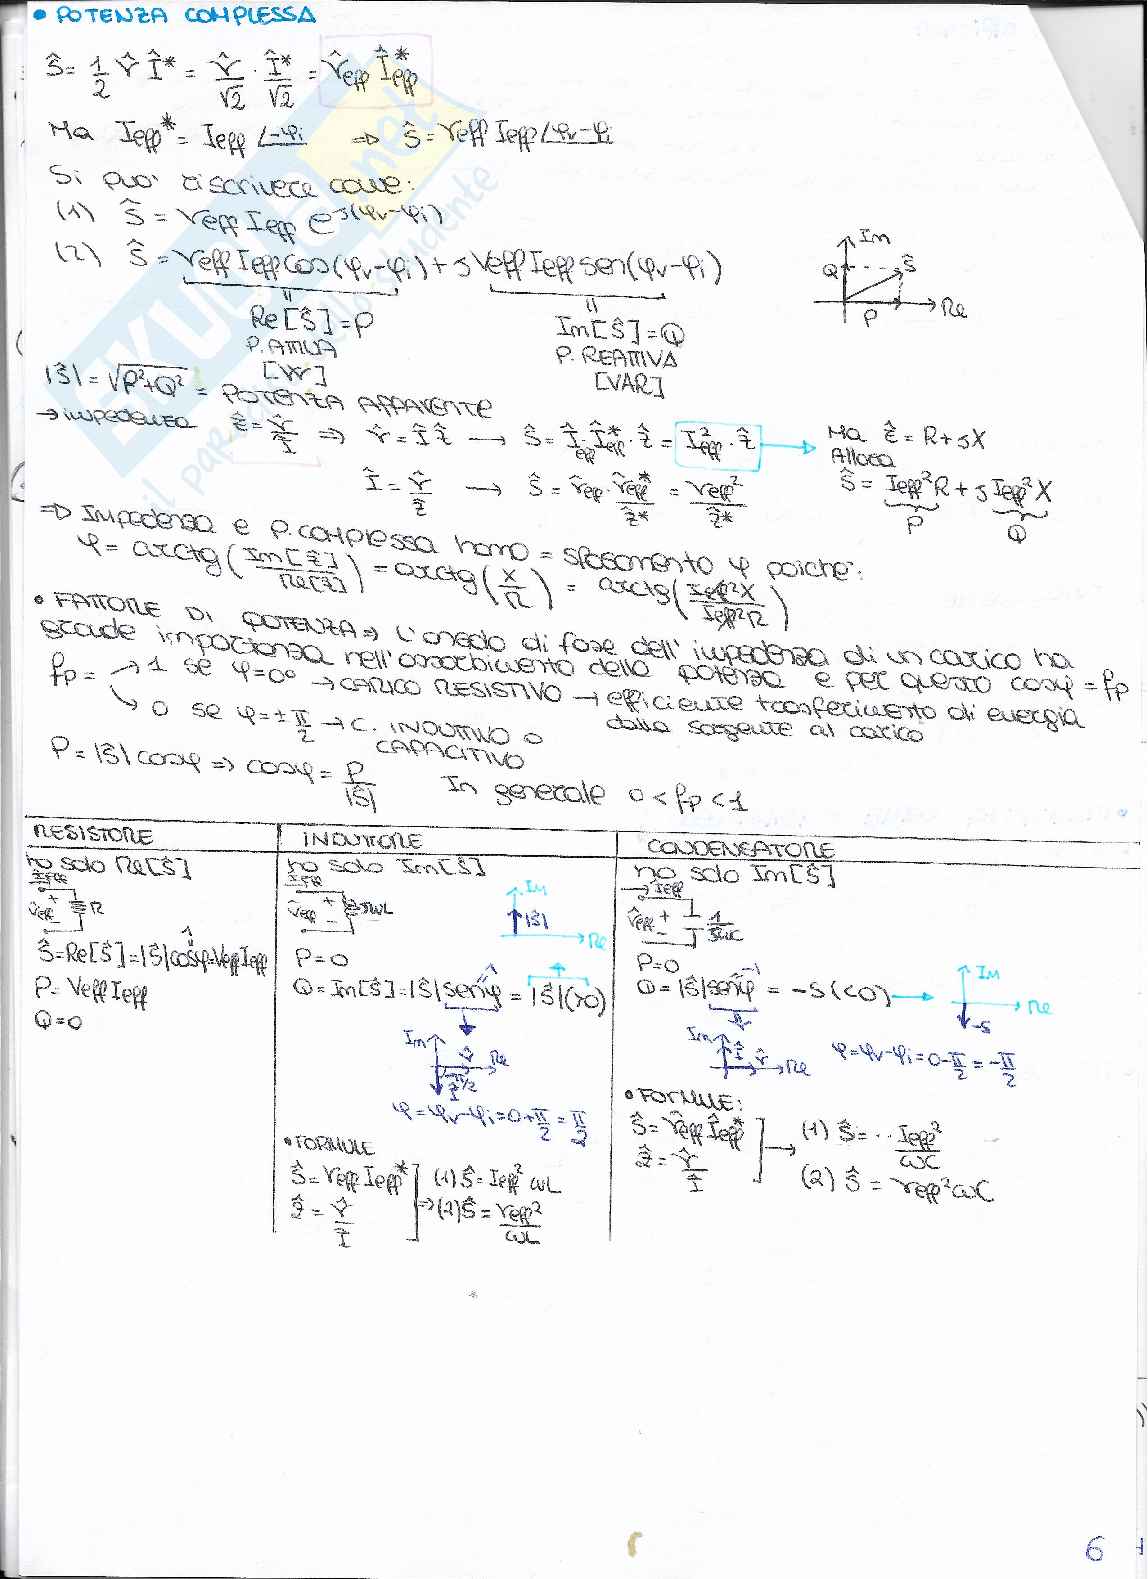 • POTENZA COMPLESSA
Ŝ = 1/2 V̂ Î* = V̂/√2 · Î*/√2 = V̂eff Îeff*
Ma Ieff* = Ieff ∠-φi ⇒ Ŝ = Veff Ieff ∠φv-φi
Si può riscrivere come:
(1) Ŝ = Veff Ieff e^J(φv-φi)
(2) Ŝ = Veff Ieff cos(φv-φi) + J Veff Ieff sen(φv-φi)
Re[Ŝ] = P
P. ATTIVA
[W]
Im[Ŝ] = Q
P. REATTIVA
[VAR]
Im
Q
Ŝ
P
Re
|Ŝ| = √P²+Q² = POTENZA APPARENTE
→ impedenza Ẑ = V̂/Î ⇒ V̂ = Î Ẑ → Ŝ = Îeff · Îeff* · Ẑ = Ieff² · Ẑ → Ma Ẑ = R + JX
Allora
Î = V̂/Ẑ → Ŝ = V̂eff · V̂eff*/Ẑ* = Veff²/Ẑ*
Ŝ = Ieff² R + J Ieff² X
P Q
⇒ Impedenza e P. complessa hanno = sfasamento φ poiché:
φ = arctg(Im[Ẑ]/Re[Ẑ]) = arctg(X/R) = arctg(Ieff²X/Ieff²R)
• FATTORE DI POTENZA ⇒ L'angolo di fase dell'impedenza di un carico ha
grande importanza nell'assorbimento della potenza e per questo cosφ = fp
fp = → 1 se φ=0° → CARICO RESISTIVO → efficiente trasferimento di energia
dalla sorgente al carico
↘ 0 se φ = ± π/2 → C. INDUTTIVO O
CAPACITIVO
P = |Ŝ| cosφ ⇒ cosφ = P/|Ŝ| In generale 0 < fp < 1
RESISTORE
ho solo Re[Ŝ]
Ieff
V̂eff + - R
Ŝ = Re[Ŝ] = |Ŝ| cosφ = Veff Ieff
1
P = Veff Ieff
Q = 0
INDUTTORE
ho solo Im[Ŝ]
Ieff
V̂eff + - JωL
Im
|Ŝ|
Re
P = 0
Q = Im[Ŝ] = |Ŝ| senφ = |Ŝ| (>0)
1
Im
V̂
Re
π/2
Î
φ = φv-φi = 0 + π/2 = π/2
• FORMULE
Ŝ = Veff Ieff*
Ẑ = V̂/Î
(1) Ŝ = Ieff² ωL
⇒ (2) Ŝ = Veff²/ωL
CONDENSATORE
ho solo Im[Ŝ]
Ieff
V̂eff + - 1/JωC
P = 0
Q = |Ŝ| senφ = -S (<0) →
-1
Im
Re
-S
Im
Î
V̂
Re
φ = φv-φi = 0 - π/2 = -π/2
• FORMULE:
Ŝ = V̂eff Îeff*
Ẑ = V̂/Î
→ (1) Ŝ = .. Ieff²/ωC
(2) Ŝ = Veff² ωC
6
SKUOLA.net
il paradiso dello studente